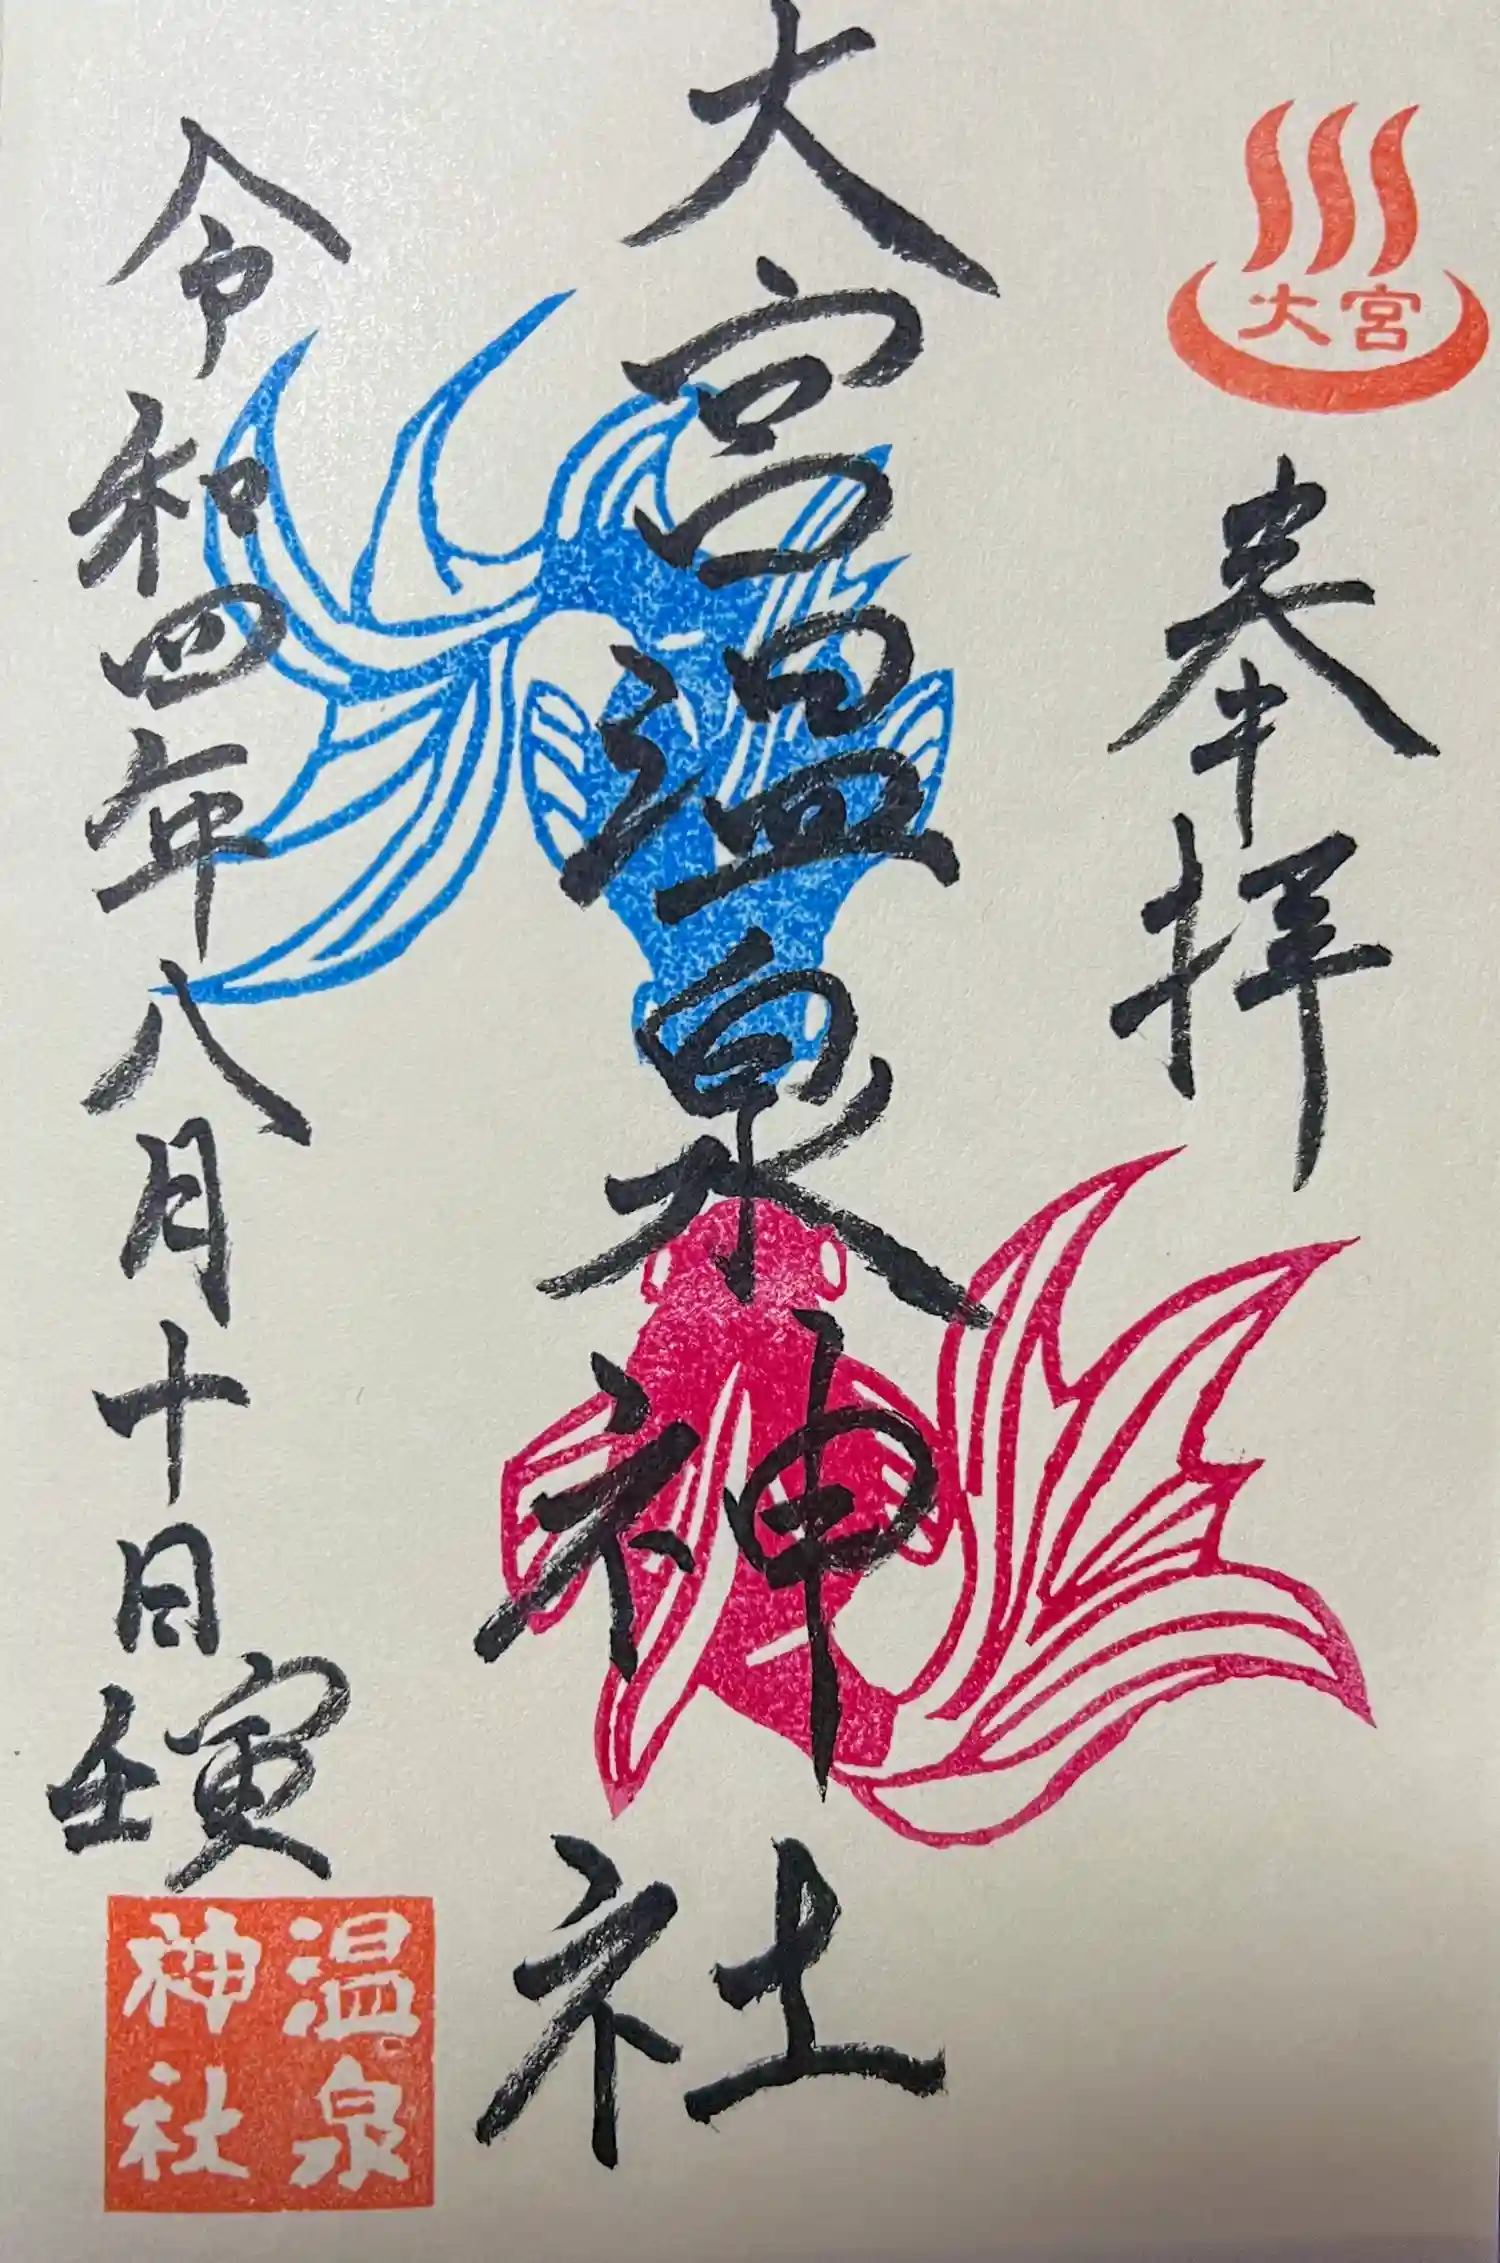 大宮
奉拝
大宮温泉神社
令和四年八月十日
壬寅
温泉
神社